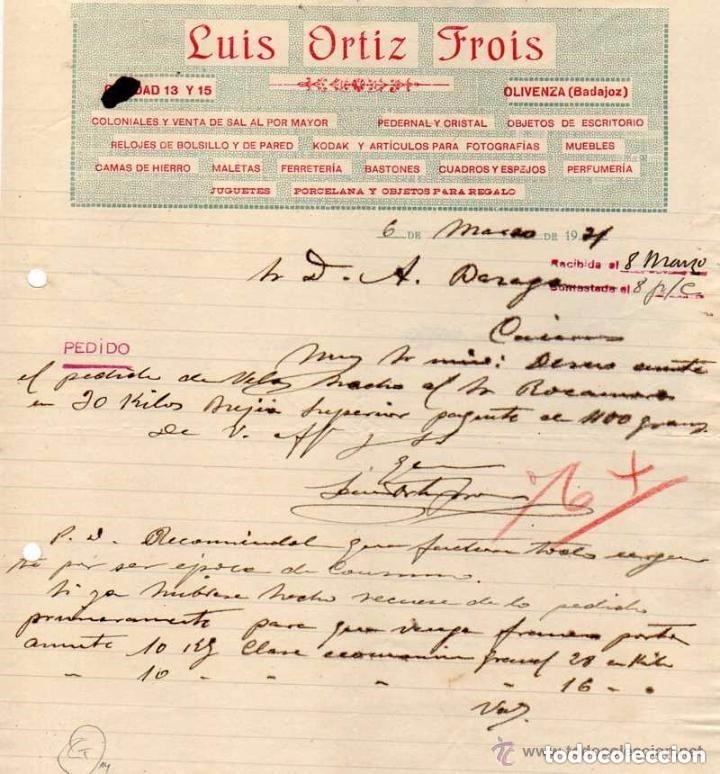 Luis Ortiz Frois
DAD 13 Y 15
OLIVENZA (Badajoz)
COLONIALES Y VENTA DE SAL AL POR MAYOR PEDERNAL Y CRISTAL OBJETOS DE ESCRITORIO
RELOJES DE BOLSILLO Y DE PARED KODAK Y ARTÍCULOS PARA FOTOGRAFÍAS MUEBLES
CAMAS DE HIERRO MALETAS FERRETERÍA BASTONES CUADROS Y ESPEJOS PERFUMERÍA
JUGUETES PORCELANA Y OBJETOS PARA REGALO
6 DE Marzo DE 19
Recibida el 8 Marzo
Contestada el 8 p/c
Sr D. A.
PEDIDO
Muy Sr mio: Deseo
el pedido de Velas hecho al Sr Rocamora
en 20 Kilos Bujia Superior paquete de 400 grams
De V. aff y ss
P. D. Recomiendol que facturen todo
por ser época de Consumo.
Si ya hubiese hecho de lo pedido
primeramente para que venga
10 Kg Clase 20 en Kilo
" 10 " " " 16 " "
todocoleccion.net
todocoleccion